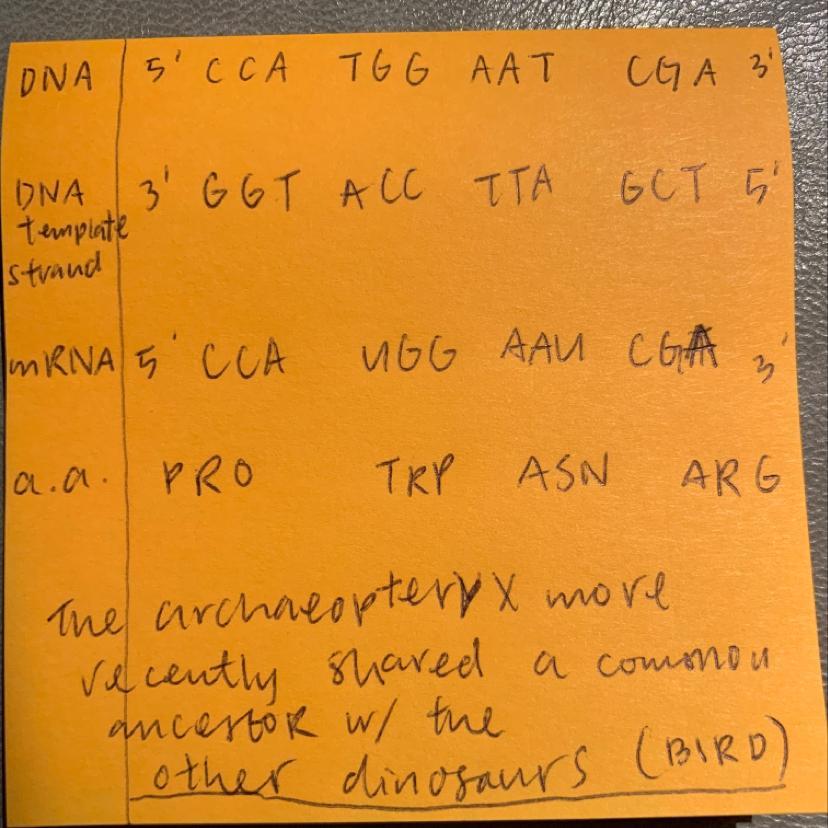 DNA 5' CCA TGG AAT CGA 3'
DNA template strand 3' GGT ACC TTA GCT 5'
mRNA 5' CCA UGG AAU CGA 3'
a.a. PRO TRP ASN ARG
The archaeopteryx more
recently shared a common
ancestor w/ the
other dinosaurs (BIRD)